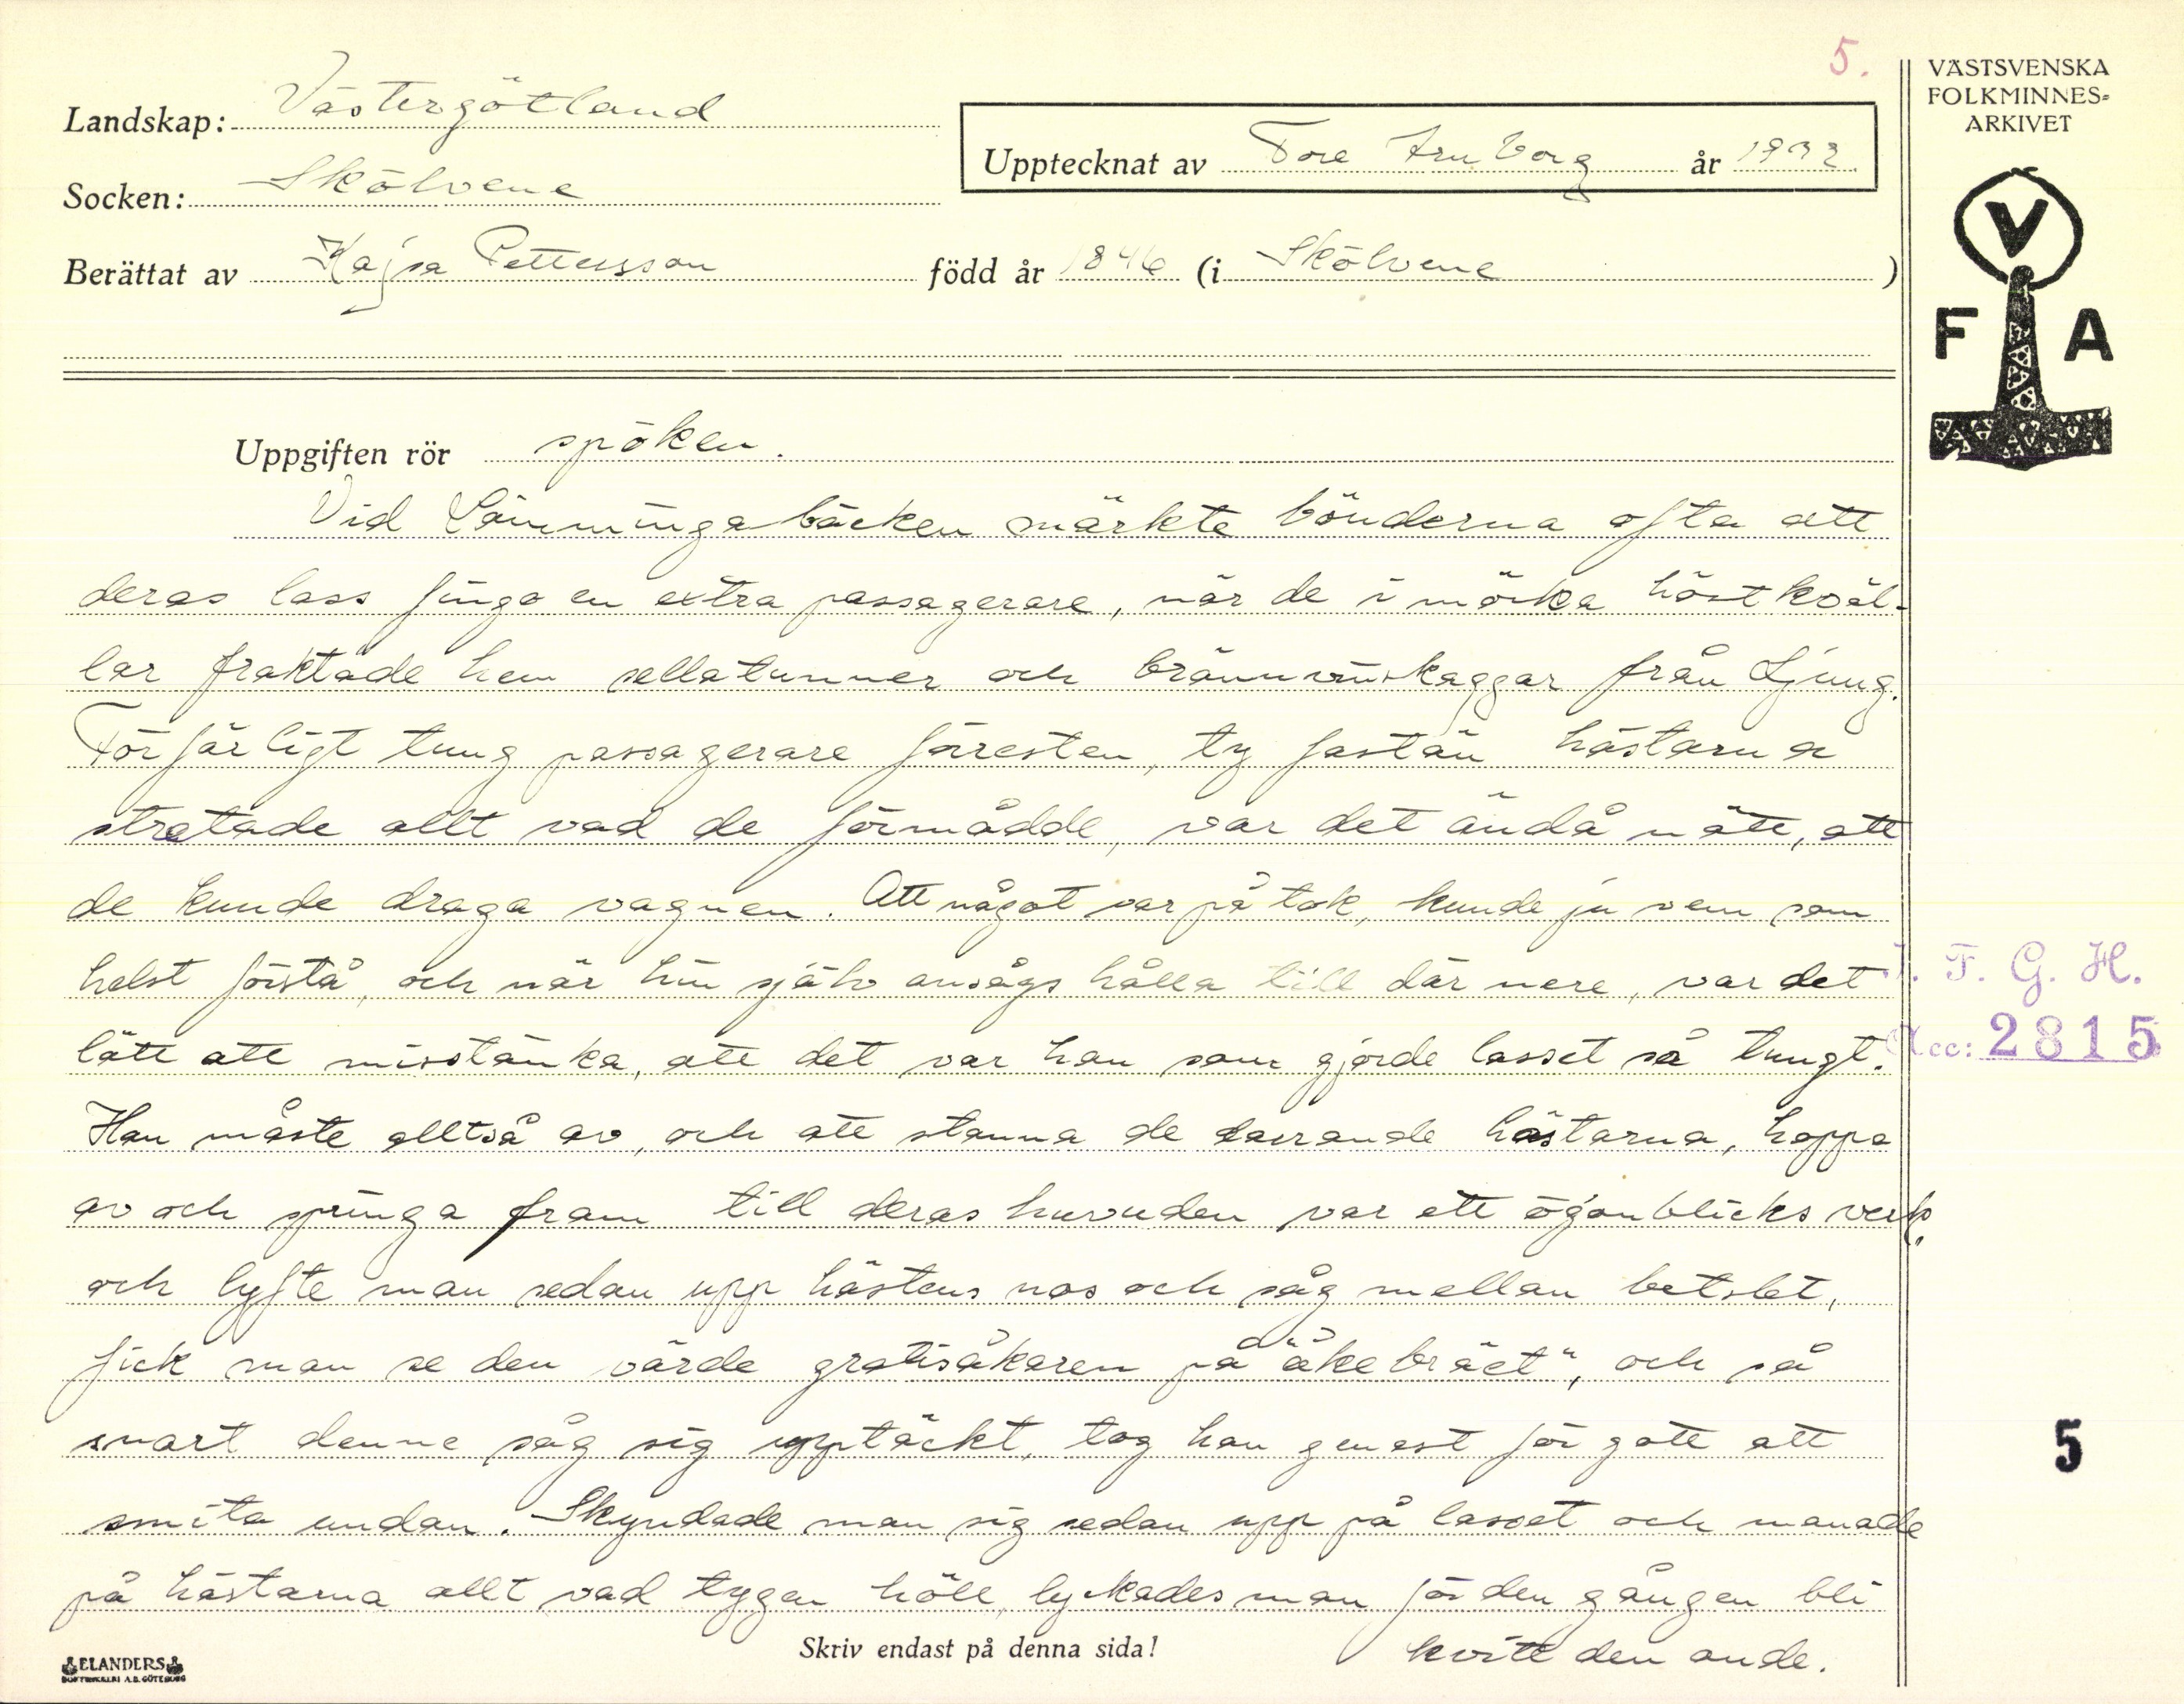 5.
VÄSTSVENSKA
FOLKMINNES=
ARKIVET
Landskap: Västergötland
Upptecknat av Tore Arnborg år 1932.
Socken: Skölvene
Berättat av Kajsa Pettersson född år 1846 (i Skölvene )
V
F A
Uppgiften rör spöken.
Vid Lönningabäcken märkte bönderna ofta att
deras lass fingo en extra passagerare, när de i mörka höstkväl-
lar fraktade hem sellatunner och brännvinskaggar från Ljung.
Förfärligt tung passagerare förresten, ty fastän hästarna
stretade allt vad de förmådde, var det ändå nätt, att
de kunde draga vagnen. Att något var på tok, kunde ju vem som
helst förstå, och när hin själv ansågs hålla till där nere, var det
lätt att misstänka, att det var han som gjorde lasset så tungt.
Han måste alltså av, och att stanna de hästarna, hoppa
av och springa fram till deras huvuden var ett ögonblicks verk.
och lyfte man sedan upp hästens nos och såg mellan betslet,
fick man se den värde gratisåkaren på "åkebräet", och så
snart denne såg sig upptäckt, tog han genast för gott att
smita undan. Skyndade man sig sedan upp på lasset och manade
på hästarna allt vad tygen höll, lyckades man för den gången bli
kvitt den onde.
I. F. G. H.
Acc: 2815
5
Skriv endast på denna sida!
ELANDERS
BOKTRYCKERI A.B. GÖTEBORG